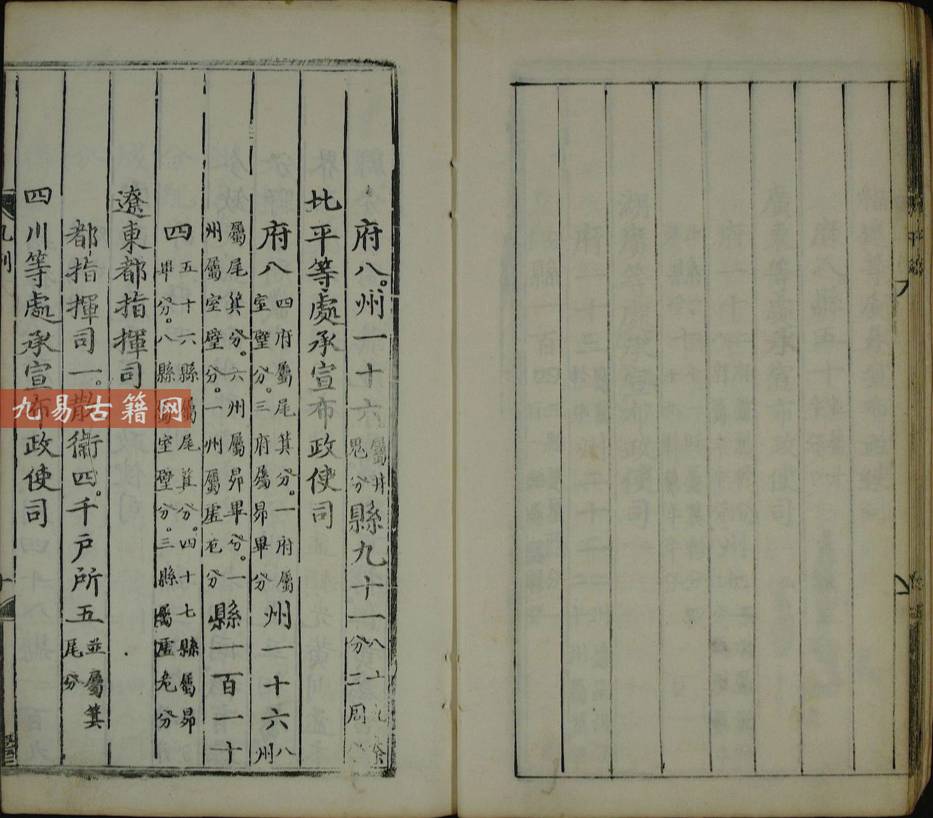 府八。州一十六屬井鬼分縣九十一八十九分二周
北平等處承宣布政使司
府八四府屬尾箕分。一府屬室壁分。三府屬昴畢分州一十六八州
屬尾箕分。六州屬昴畢分。一州屬室壁分。一州屬虛危分縣一百一十
四五十六縣屬尾箕分。四十七縣屬昴畢分。八縣屬室壁分。三縣屬虛危分
遼東都指揮司
都指揮司一。散衛四。千戶所五並屬箕尾分
四川等處承宣布政使司
九易古籍网